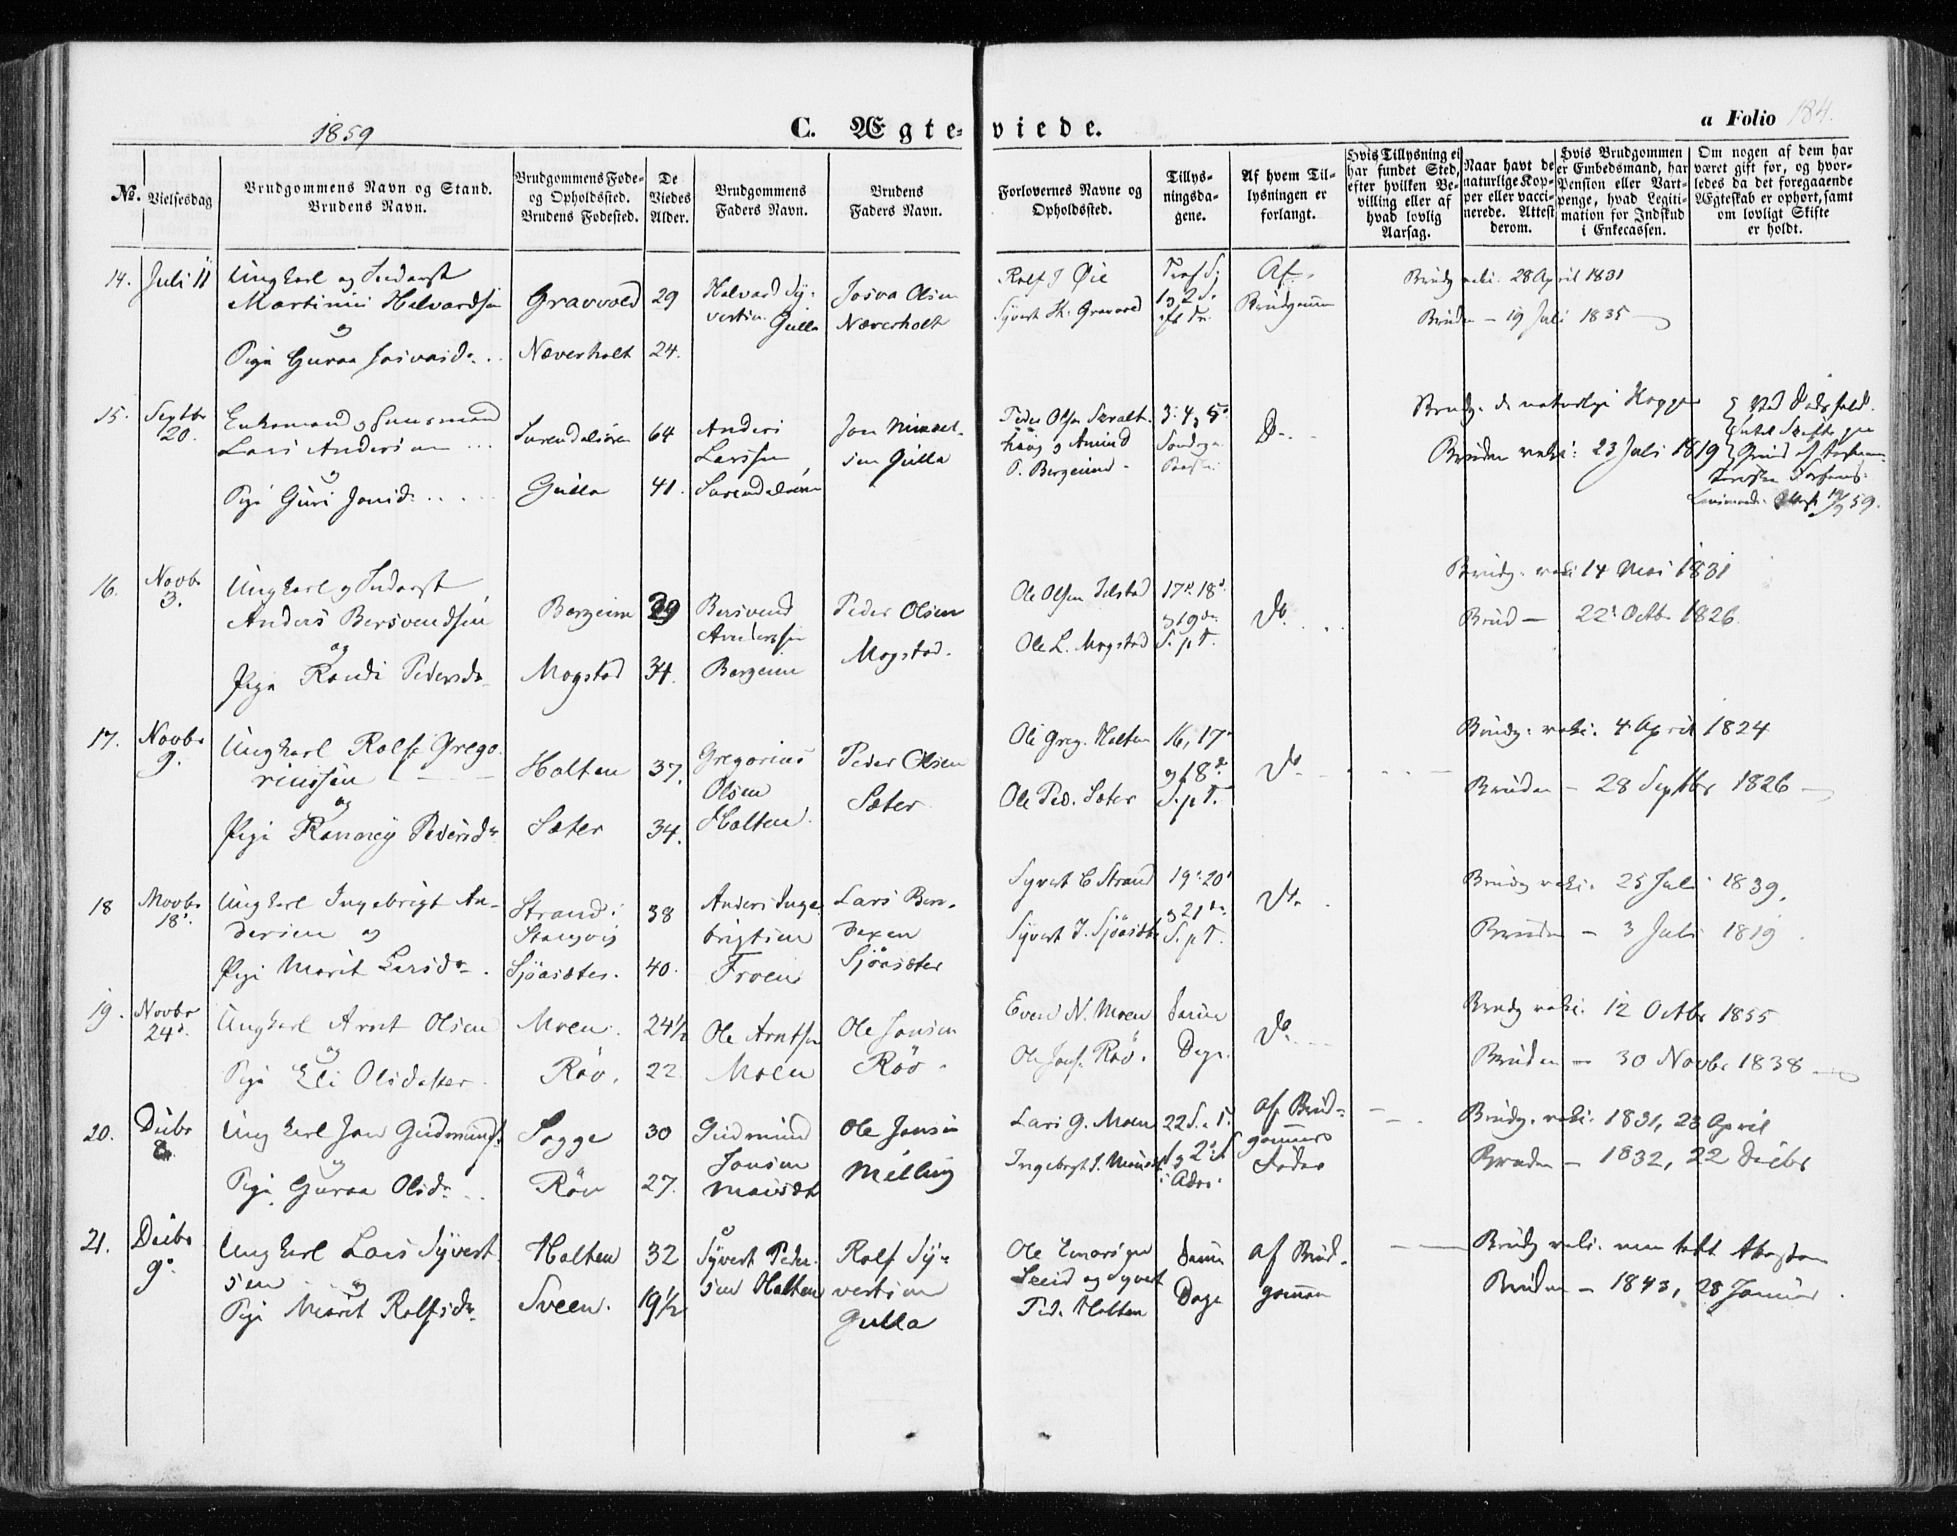 1859
C. Ægte-viede.
a Folio 184.
No.
Vielsesdag
Brudgommens Navn og Stand.
Brudens Navn.
Brudgommens Føde-
og Opholdssted.
Brudens Fødested.
De
Viedes
Alder.
Brudgommens
Faders Navn.
Brudens
Faders Navn.
Forlovernes Navne og
Opholdssted.
Tillys-
ningsda-
gene.
Af hvem Til-
lysningen er
forlangt.
Hvis Tillysning ei
har fundet Sted,
efter hvilken Be-
villing eller af
hvad lovlig
Aarsag.
Naar havt de
naturlige Kop-
per eller vacci-
nerede. Attest
derom.
Hvis Brudgommen
er Embedsmand, har
Pension eller Vart-
penge, hvad Legiti-
mation for Indskud
i Enkecassen.
Om nogen af dem har
været gift før, og hvor-
ledes da det foregaaende
Ægteskab er ophørt, samt
om lovligt Skifte
er holdt.
14. Juli 11
Ungkarl og Inderst
Halvardsen
og
Pige Guraa Josvasd.
Gravvold
Næverholt
29
24.
Halvard Sy-
vertsen Gulla
Josva Olsen
Næverholt
Rolf J Øie
Syvert H. Gravvold
1 g 2 S.
Af
Brudgommen
Brudg vaki. 28 April 1831
Bruden - 19 Juli 1835
15. Septbr
20.
Enkemand g Huusmand
Lars Andersen
og
Pige Guri Jonsd.
Surendalsøren
Gulla
64
41.
Anders
Larssen
Surendalsøren
Jon
sen Gulla
Peder Olsen
haug g Amund
O. Bergeim
3. 4 g 5
Søndag
Do
Brudg. de naturlige Kopper
Bruden vaki: 23 Juli 1819
Ved Dødsfald.
59.
16. Novbr
3.
Ungkarl g Inderst
Anders Bersvendsen
og
Pige Randi Pedersd.
Bergeim
Mogstad
29
34.
Bersvend
Andersen
Bergeim
Peder Olsen
Mogstad.
Ole Olsen
Ole L. Mogstad
17. 18
g 19de
S. p. T.
Do
Brudg. vaki 14 Mai 1831
Brud - 22 Octbr 1826.
17. Novbr
9.
Ungkarl Rolf Grego-
riussen
og
Pige Rannei Pedersd.
Halten
Sæter
37.
34.
Gregorius
Olsen
Halten
Peder Olsen
Sæter
Ole Greg. Halten
Ole Ped. Sæter
16, 17
g 18de
S. p. T.
Do
Brudg. vaki. 4 April 1824
Bruden - 28 Septbr 1826
18 Novbr
18.
Ungkarl Ingebrigt An-
dersen og
Pige Marit Larsd.
Strand i
Stangvig
Sjøasæter.
38
40.
Anders Inge-
brigtsen
Froen
Lars
Sjøasæter
Syvert E Strand
Syvert J. Sjøasæter
19. 20
g 21de
S. p. T.
Do
Brudg vaki. 25 Juli 1839.
Bruden - 3 Juli 1819.
19. Novbr
24.
Ungkarl Arnt Olsen
og
Pige Eli Olsdatter
Moen.
Røv.
24½
22
Ole Arntsen
Moen
Ole Jonsen
Røv.
Even N. Moen
Ole Jons. Røv.
samme
Dage.
Do
Brudg vaki. 12 Octbr 1855
Bruden - 30 Novbr 1838
20. Decbr
8.
Ungkarl Jon Gudmunds.
og
Pige Guraa Olsd.
Sogge
Røv
30
27.
Gudmund
Jonsen
Ole Jonsen
Melling
Lars G. Moen
22 S. e. T.
1 g 2 S
i Adv.
af Brud-
gommens
Fader
Brudg. vaki. 1831, 23 April
Bruden - 1832, 22 Decbr
21. Decbr
9.
Ungkarl Lars Syvert-
sen og
Pige Marit Rolfsd.
Halten
Sveen.
32
19½
Syvert Peder-
sen Halten
Rolf Sy-
vertsen
Gulla
Ole Einarsen
og Syvert
Ped. Halten
samme
Dage
af Brud-
gommen
Brudg vaki. men tabt Attesten
Bruden - 1843, 28 Januar.